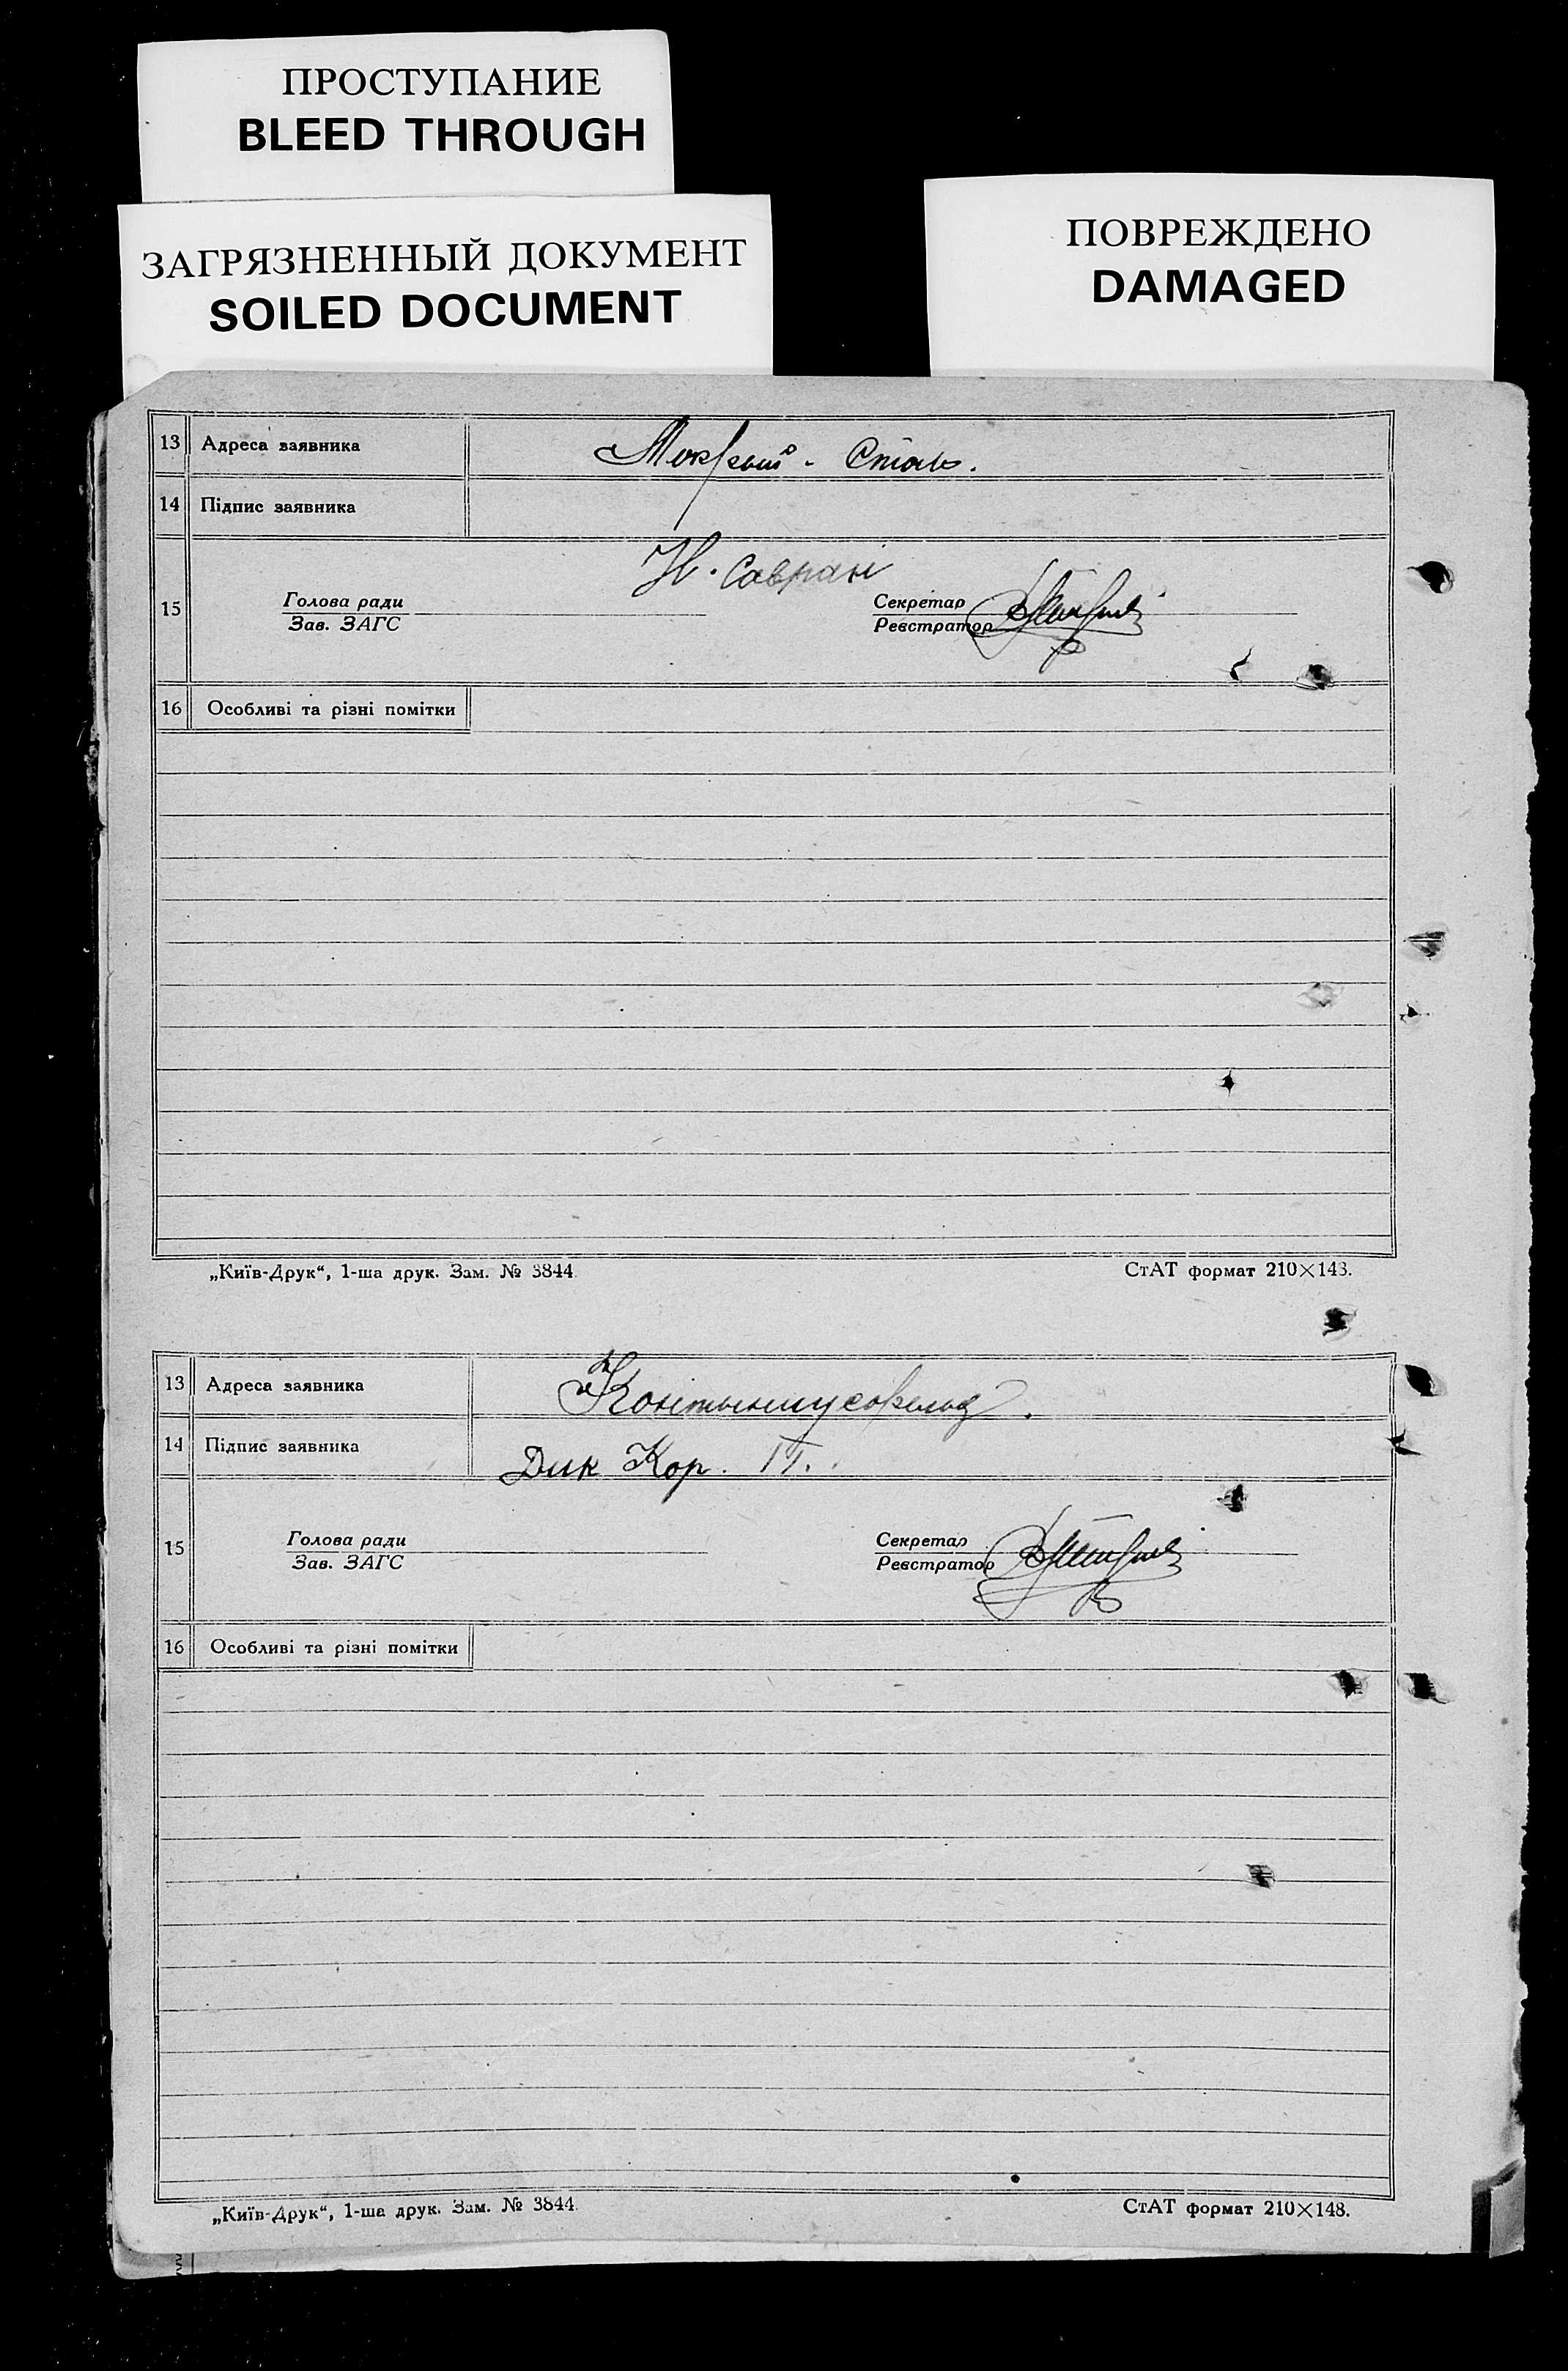 ПРОСТУПАНИЕ
BLEED THROUGH
ЗАГРЯЗНЕННЫЙ ДОКУМЕНТ
SOILED DOCUMENT
ПОВРЕЖДЕНО
DAMAGED
13 Адреса заявника Мокрый - Став.
14 Підпис заявника
Н. Саврані
15 Голова ради Секретар
Зав. ЗАГС Реєстратор
16 Особливі та різні помітки
„Київ-Друк“, 1-ша друк. Зам. № 3844 СтАТ формат 210×143.
13 Адреса заявника
14 Підпис заявника Дик Кор.
15 Голова ради Секретар
Зав. ЗАГС Реєстратор
16 Особливі та різні помітки
„Київ-Друк“, 1-ша друк. Зам. № 3844 СтАТ формат 210×148.